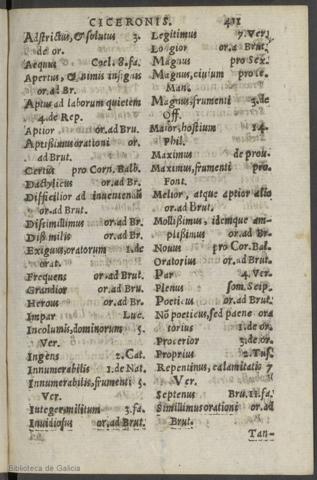 CICERONIS. 411
Adstrictus, & solutus 3.
de or.
Aequus Coel. 8. fa.
Apertus, & nimis insignis
or. ad Br.
Aptus ad laborum quietem
4. de Rep.
Aptior or. ad Bru.
Aptißimus orationi or.
ad Brut.
Certus pro Corn. Balb.
Dactylicus or. ad Br.
Difficilior ad inueniendũ
or. ad Brut.
Dissimillimus or. ad Br.
Dißimilis or. ad Br.
Exiguus, oratorum 1. de
orat.
Frequens or. ad Brut.
Grandior or. ad Br.
Herous or. ad Br.
Impar Luc.
Incolumis, dominorum 5.
Ver.
Ingens 2. Cat.
Innumerabilis 1. de Nat.
Innumerabilis, frumenti 5.
Ver.
Integer, militum 3. fa.
Inuidiosus or. ad Brut.
Legitimus 7. Ver.
Lõgior or. a Brut.
Magnus pro Sex.
Magnus, ciuium pro le.
Man.
Magnus, frumenti 3. de
Off.
Maior, hostium 14.
Phil.
Maximus de prou.
Maximus, frumenti pro
Font.
Melior, atque aptior alio
or. ad Brut.
Mollißimus, idemque am-
plißimus or. ad Br.
Nouus pro Cor. Bal.
Oratorius or. ad Brut.
Par 4. Ver.
Plenus som. Scip.
Poeticus or. ad Brut.
Nõ poeticus, sed paene ora
torius 1. de or.
Procerior 3. de or.
Proprius 2. Tus.
Repentinus, calamitatis 7
Ver.
Septenus Bru. 11. fa.
Simillimus orationi or. ad
Brut.
Tan-
Biblioteca de Galicia